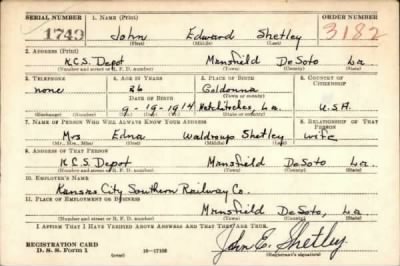 SERIAL NUMBER 1. NAME (Print) ORDER NUMBER
1749 John Edward Shetley 3182
(First) (Middle) (Last)
2. ADDRESS (Print)
K.C.S. Depot Mansfield DeSoto La.
(Number and street or R. F. D. number) (Town) (County) (State)
3. TELEPHONE 4. AGE IN YEARS 5. PLACE OF BIRTH 6. COUNTRY OF CITIZENSHIP
none 26 Goldonna
DATE OF BIRTH (Town or county)
9-19-1914 Natchitoches, La. U.S.A.
(Exchange) (Number) (Mo.) (Day) (Yr.) (State or country)
7. NAME OF PERSON WHO WILL ALWAYS KNOW YOUR ADDRESS 8. RELATIONSHIP OF THAT PERSON
Mrs Edna Waldroup Shetley wife
(Mr., Mrs., Miss) (First) (Middle) (Last)
9. ADDRESS OF THAT PERSON
K.C.S. Depot Mansfield DeSoto La.
(Number and street or R. F. D. number) (Town) (County) (State)
10. EMPLOYER'S NAME
Kansas City Southern Railway Co.
11. PLACE OF EMPLOYMENT OR BUSINESS
Mansfield DeSoto, La
(Number and street or R. F. D. number) (Town) (County) (State)
I AFFIRM THAT I HAVE VERIFIED ABOVE ANSWERS AND THAT THEY ARE TRUE.
REGISTRATION CARD
D. S. S. Form 1 (over) John E. Shetley
(Registrant's signature)